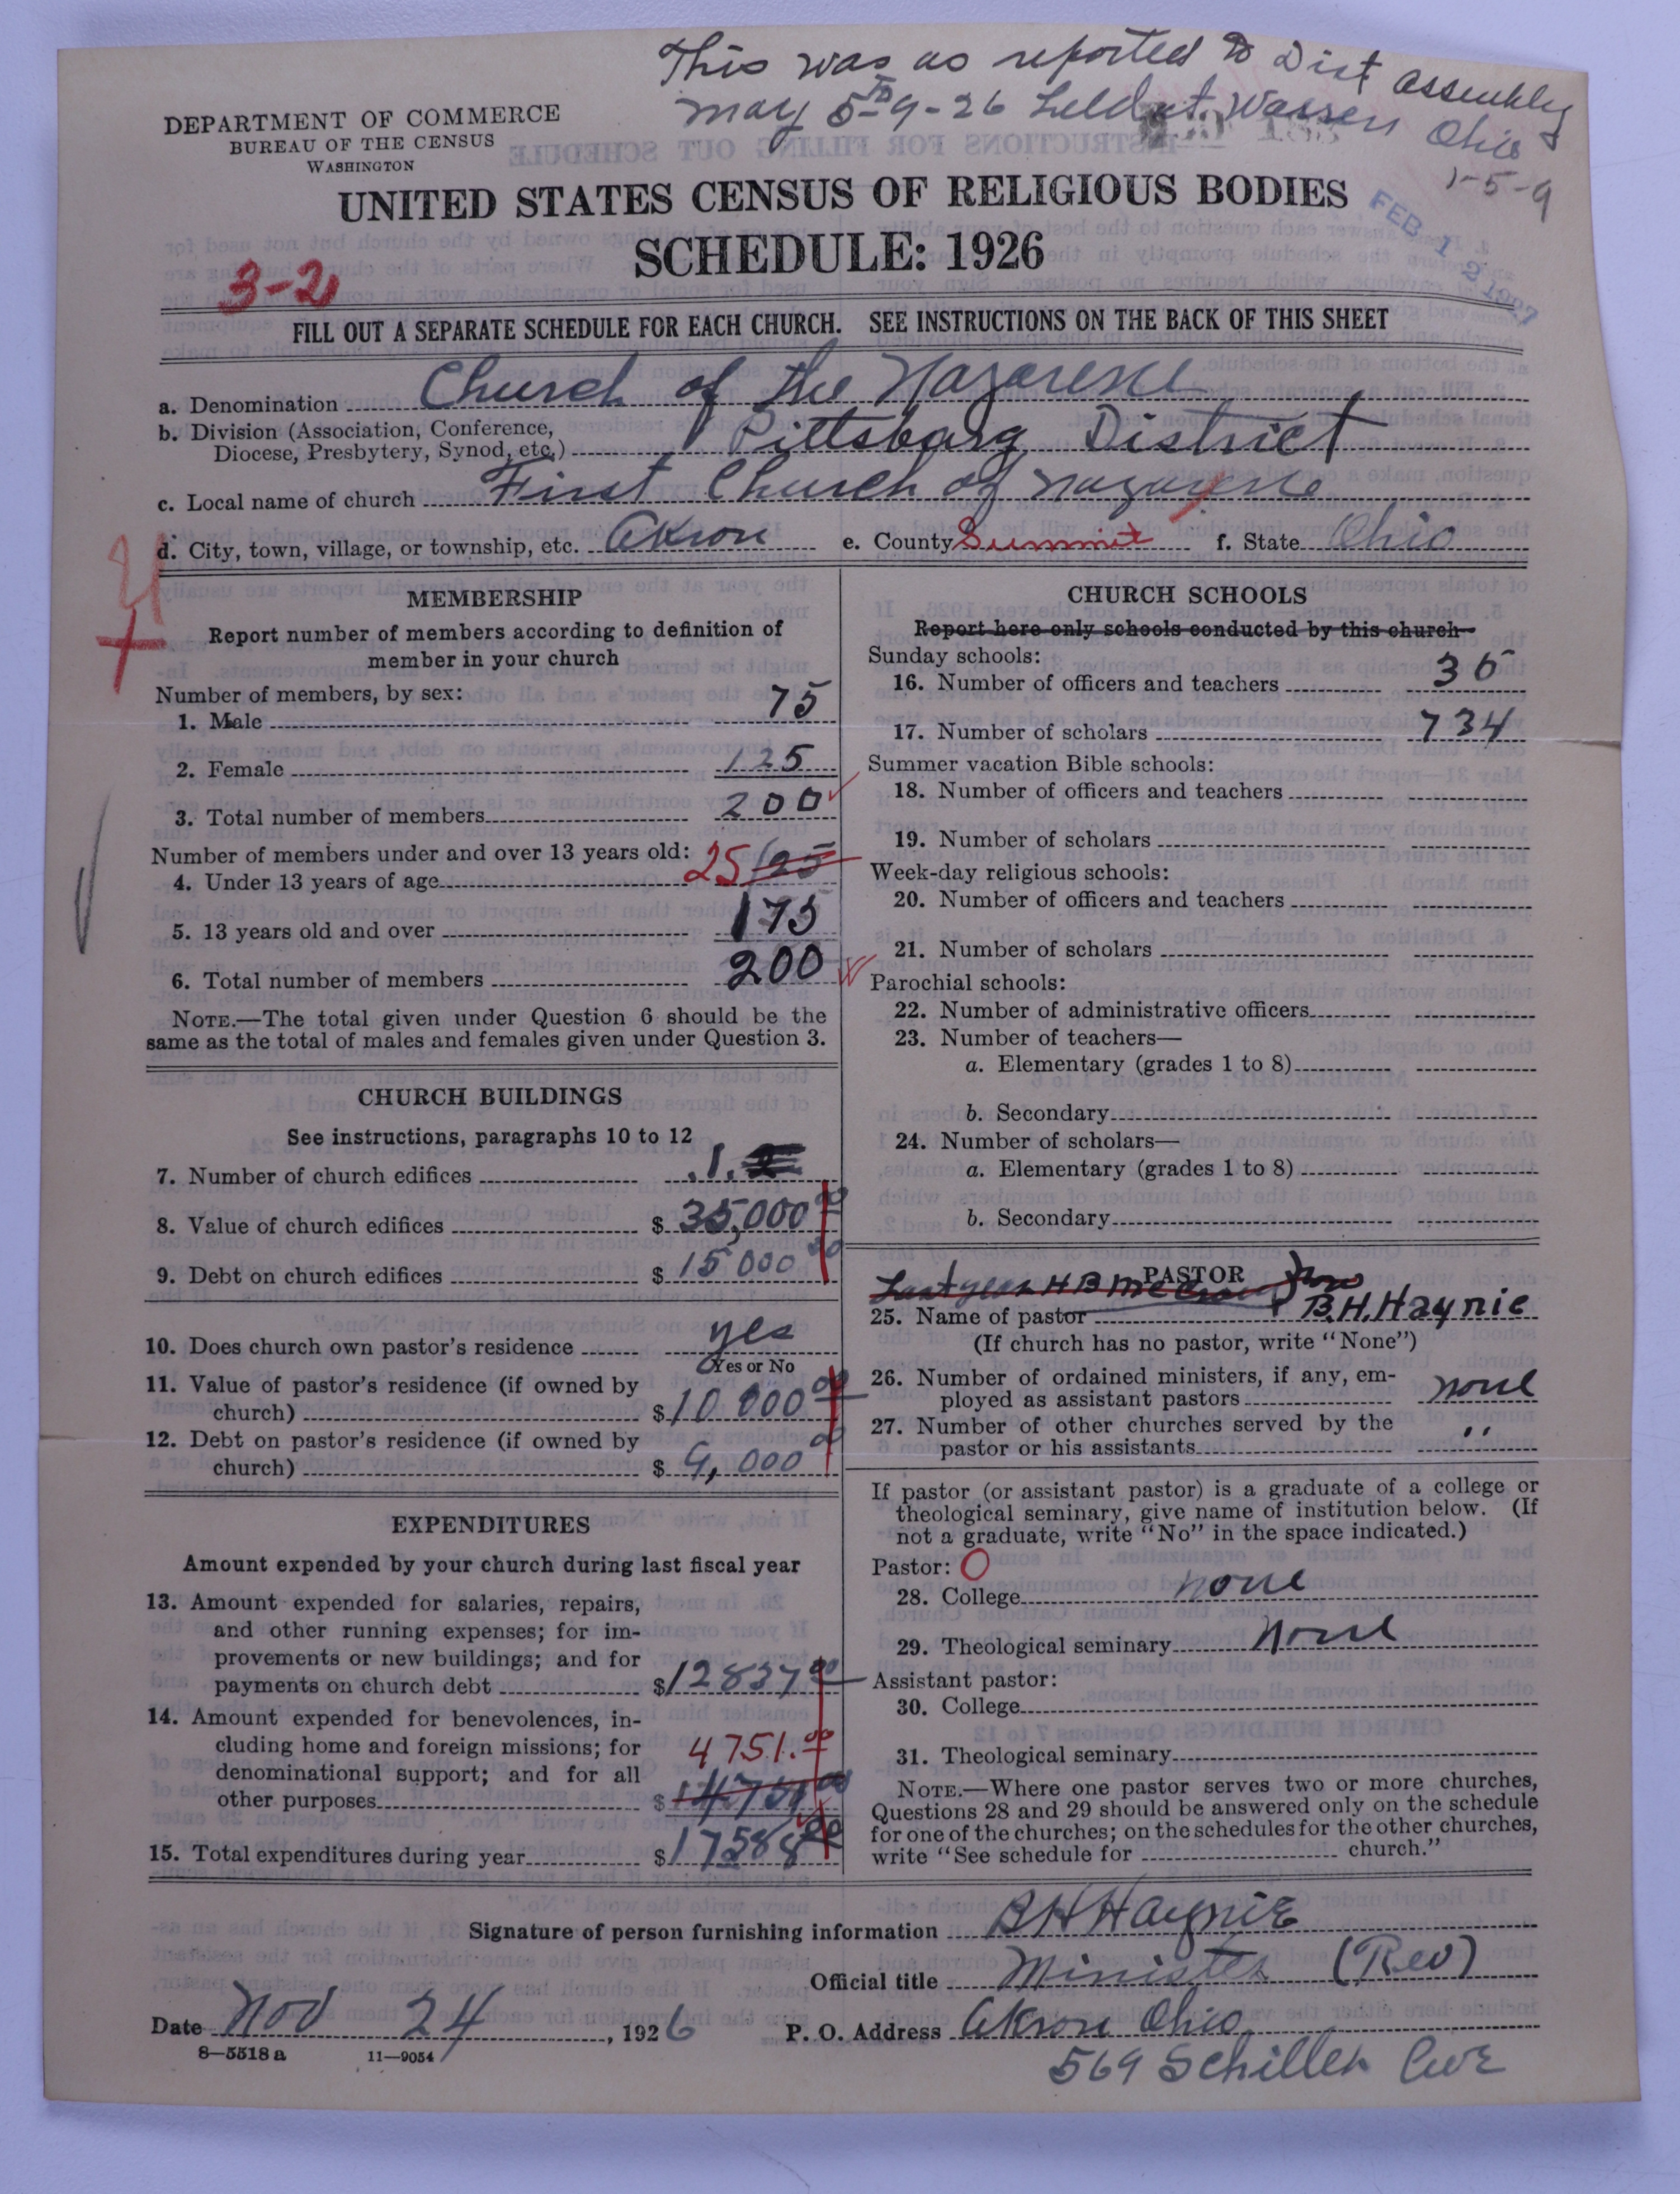 This was as reported to Dist assembly
may 5 to 9-26 held at Warren Ohio
1-5-9
DEPARTMENT OF COMMERCE
BUREAU OF THE CENSUS
WASHINGTON
UNITED STATES CENSUS OF RELIGIOUS BODIES
SCHEDULE: 1926
FEB 12 1927
3-2
FILL OUT A SEPARATE SCHEDULE FOR EACH CHURCH. SEE INSTRUCTIONS ON THE BACK OF THIS SHEET
a. Denomination Church of the Nazarene
b. Division (Association, Conference,
Diocese, Presbytery, Synod, etc.) Pittsburg District
c. Local name of church First Church of Nazarene
d. City, town, village, or township, etc. Akron e. County Summit f. State Ohio
MEMBERSHIP
Report number of members according to definition of
member in your church
Number of members, by sex:
1. Male 75
2. Female 125
3. Total number of members 200
Number of members under and over 13 years old:
4. Under 13 years of age 25 125
5. 13 years old and over 175
6. Total number of members 200
NOTE.—The total given under Question 6 should be the
same as the total of males and females given under Question 3.
CHURCH BUILDINGS
See instructions, paragraphs 10 to 12
7. Number of church edifices 1
8. Value of church edifices $ 35,000 00
9. Debt on church edifices $ 15 000 00
10. Does church own pastor's residence yes
Yes or No
11. Value of pastor's residence (if owned by
church) $ 10 000 00
12. Debt on pastor's residence (if owned by
church) $ 9,000 00
EXPENDITURES
Amount expended by your church during last fiscal year
13. Amount expended for salaries, repairs,
and other running expenses; for im-
provements or new buildings; and for
payments on church debt $ 12837 00
14. Amount expended for benevolences, in-
cluding home and foreign missions; for 4751.00
denominational support; and for all
other purposes $ 14751 00
15. Total expenditures during year $ 17588 00
CHURCH SCHOOLS
Report here only schools conducted by this church
Sunday schools:
16. Number of officers and teachers 36
17. Number of scholars 734
Summer vacation Bible schools:
18. Number of officers and teachers
19. Number of scholars
Week-day religious schools:
20. Number of officers and teachers
21. Number of scholars
Parochial schools:
22. Number of administrative officers
23. Number of teachers—
a. Elementary (grades 1 to 8)
b. Secondary
24. Number of scholars—
a. Elementary (grades 1 to 8)
b. Secondary
PASTOR
Last year H B now
25. Name of pastor B.H. Haynie
(If church has no pastor, write "None")
26. Number of ordained ministers, if any, em-
ployed as assistant pastors none
27. Number of other churches served by the
pastor or his assistants "
If pastor (or assistant pastor) is a graduate of a college or
theological seminary, give name of institution below. (If
not a graduate, write "No" in the space indicated.)
Pastor: O
28. College none
29. Theological seminary none
Assistant pastor:
30. College
31. Theological seminary
NOTE.—Where one pastor serves two or more churches,
Questions 28 and 29 should be answered only on the schedule
for one of the churches; on the schedules for the other churches,
write "See schedule for church."
Signature of person furnishing information B H Haynie
Official title Minister (Rev)
Date Nov 24, 1926 P. O. Address Akron Ohio
8—5518 a 11—9054
569 Schiller Ave